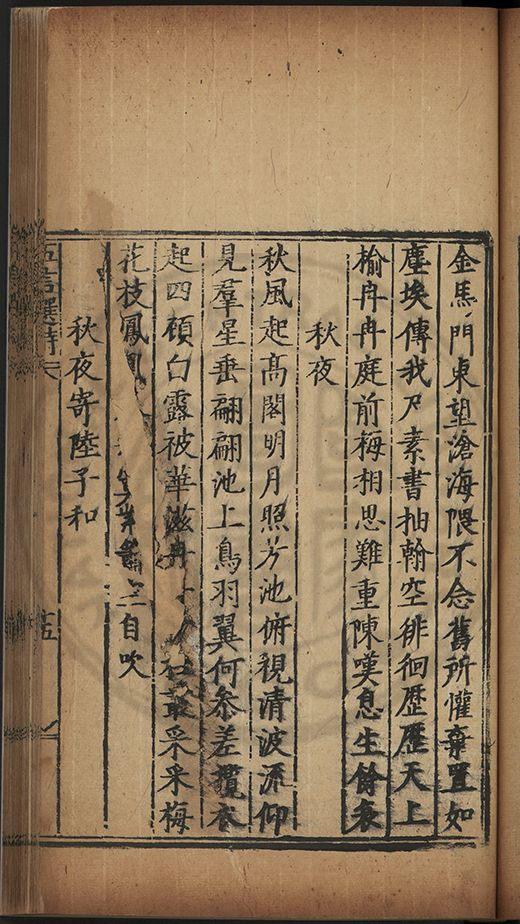 金馬門東望滄海隈不念舊所懽棄置如
塵埃傳我尺素書抽翰空徘徊歷歷天上
榆冉冉庭前梅相思難重陳嘆息生餘哀
秋夜
秋風起高閣明月照芳池俯視清波流仰
見羣星垂翩翩池上鳥羽翼何參差攬衣
起四顧白露被華滋冉 叢采采梅
花枝鳳凰 自吹
秋夜寄陸子和
五言選詩 五